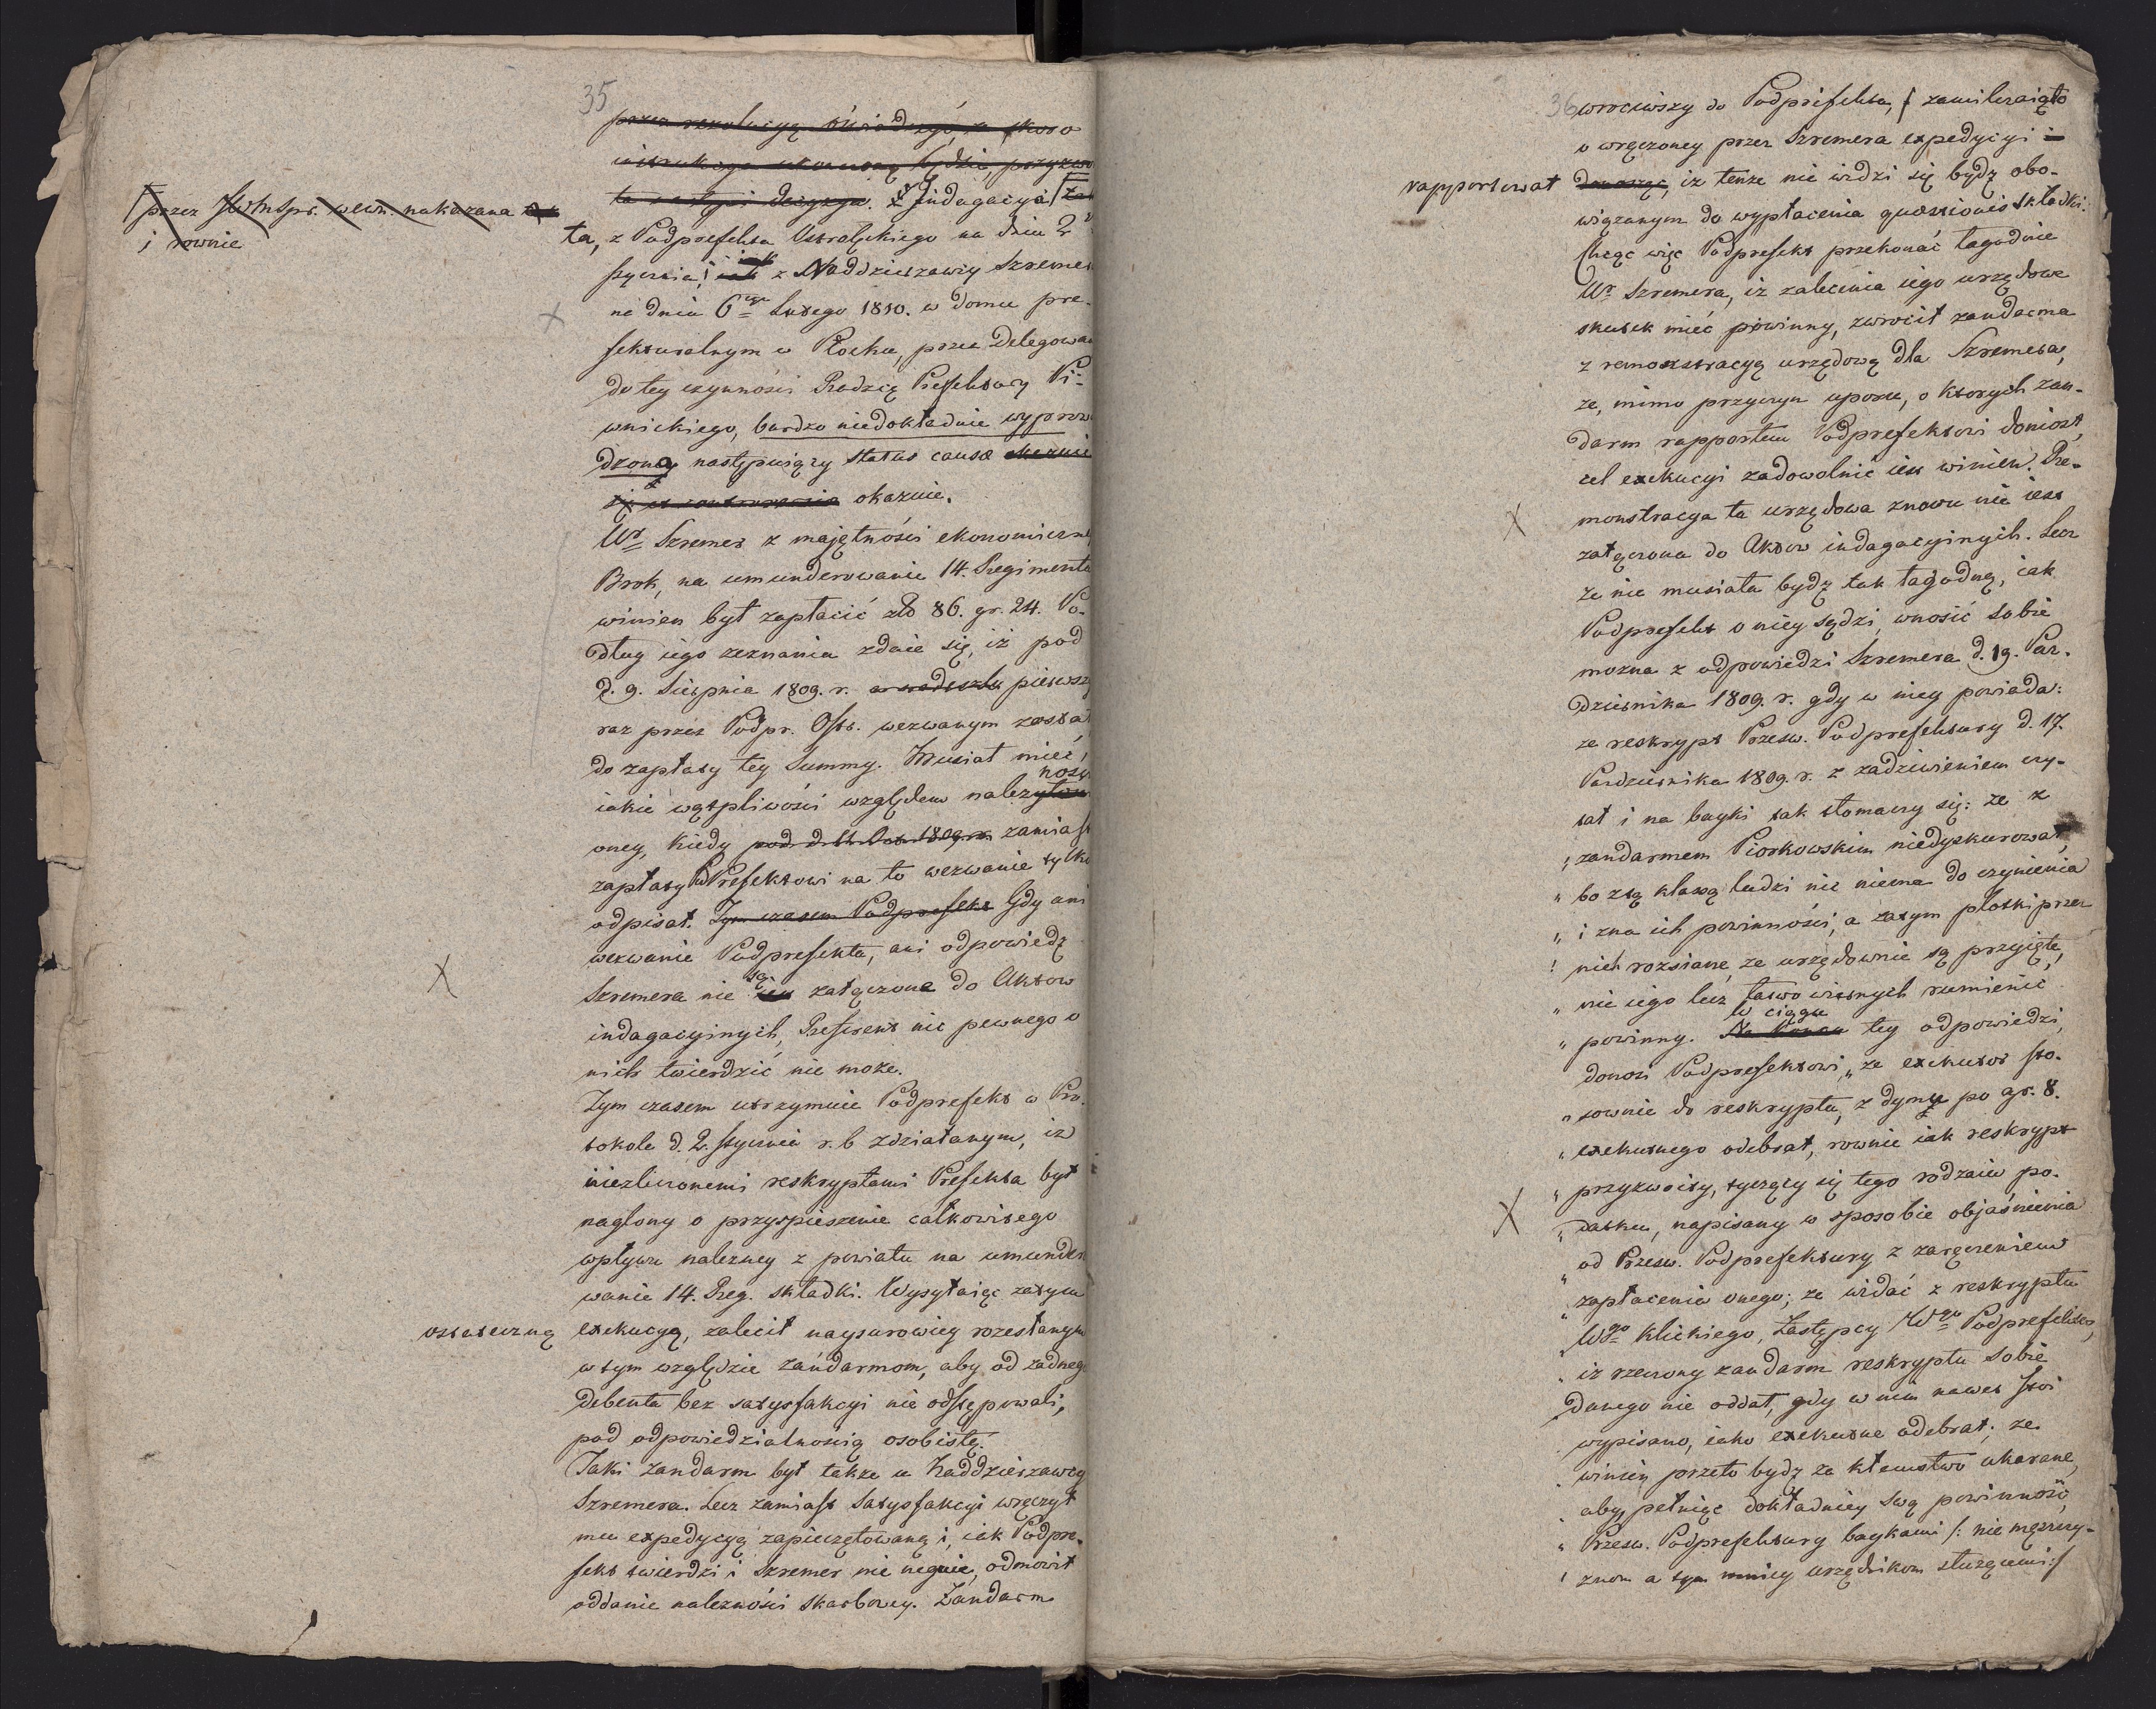 35
przez rezolucyą oświadczyć, że skoro
instrukcya ukonczoną będzie, przyzwo
ta nastąpi decyzya. Indagacya
przez JWMSpr. wewn. nakazana
i rownie
ta, z Podprefekta Ostrołęckiego na dniu 2
stycznia, iak z Naddzierzawcy Szremer
na dniu 6go Lutego 1810. w domu pre-
fekturalnym w Płocku, przez Delegowa
do tey czynności Radzcę Prefektury Pi-
wnickiego, bardzo niedokładnie wyprow
dzona następuiący status causæ
okazuie.
Wr Szremer z majętności ekonomiczne
Brok, na umunderowanie 14. Regimentu
winien był zapłacić zł 86. gr. 24. Po-
dług iego zeznania zdaie się, iż pod
d. 9. Sierpnia 1809. r. pierwszy
raz przez Podpr. Ostr. wezwanym został
do zapłaty tey Summy. Musiał mieć
iakie wątpliwości względem należytosci
nosci
oney, kiedy pod d. 1809 r. zamiast
zapłaty PodPrefektowi na to wezwanie tylko
odpisał. Tym czasem Podprefekt Gdy ani
wezwanie Podprefekta, ani odpowiedź
Szremera nie są załączone do Aktow
indagacyinych, Referent nic pewnego o
nich twierdzić nie może.
Tym czasem utrzymuie Podprefekt w Pro-
tokole d. 2. stycznia r. b. zdziałanym, iż
niezliczonemi reskryptami Prefekta był
naglony o przyspieszenie całkowitego
wpływu należney z powiatu na umunder
wanie 14. Reg. składki. Wysyłaiąc zatym
ostateczną exekucyą, zalecił naysurowiey rozesłanym
w tym względzie żandarmom, aby od żadnego
debenta bez satysfakcyi nie odstępowali,
pod odpowiedzialnością osobistą.
Taki żandarm był także u Naddzierzawcy
Szremera. Lecz zamiast satysfakcyi wręczył
mu expedycyą zapieczętowaną i, iak Podpre-
fekt twierdzi i Szremer nie neguie, odmowił
oddanie należności skarbowey. Żandarm
36 wrociwszy do Podprefekta, zamilczaiąc
o wręczoney przez Szremera expedycyi i
rapportował donosząc, iż tenże nie widzi się bydź obo-
wiązanym do wypłacenia quæstionis składki.
Chcąc więc Podprefekt przekonać łagodnie
Wr Szremera, iż zalecenia iego urzędowe
skutek mieć powinny, zwrócił żandarma
z remonstracyą urzędową dla Szremera,
że, mimo przyczyn uporu, o ktorych żan-
darm rapportem Podprefektowi doniosł,
cel exekucyi zadowolnić iest winien. Re-
monstracya ta urzędowa znowu nie iest
załączona do Aktow indagacyinych. Lecz
że nie musiała bydź tak łagodną, iak
Podprefekt o niey sądzi, wnosić sobie
można z odpowiedzi Szremera d. 19. Paz-
dziernika 1809. r. gdy w niey powiada:
że reskrypt Przesw. Podprefektury d. 17.
Pazdziernika 1809. r. z zadziwieniem czy-
tał i na bayki tak tłomaczy się: że z
„ żandarmem Piorkowskim niedyskurował,
„ bo z tą klassą ludzi nic niema do czynienia
„ i zna ich powinności, a zatym plotki przez
„ nich rozsiane, że urzędownie są przyięte,
„ nie iego lecz łatwo wiernych rumienić
„ powinny. W ciągu tey odpowiedzi,
donosi Podprefektowi, „że exekutor sto-
„ sownie do reskryptu, z dymu po gr. 8.
„ exekutnego odebrał, rownie iak reskrypt
„ przyzwoity, tyczący się tego rodzaiu po-
„ datku, napisany w sposobie objaśnienia
„ od Przesw. Podprefektury z zaręczeniem
„ zapłacenia onego; że widać z reskryptu
„ Wgo Klickiego, Zastępcy Wgo Podprefekta,
„ iż rzeczony żandarm reskryptu sobie
„ danego nie oddał, gdy w nim nawet stoi
„ wypisano, iako exekutne odebrał; że
„ winien przeto bydź za kłamstwo ukarane,
„ aby, pełniąc dokładniey swą powinność
„ Przesw. Podprefektury baykami /: nie mężczy-
„ znom a tym mniey urzędnikom służącemi :/